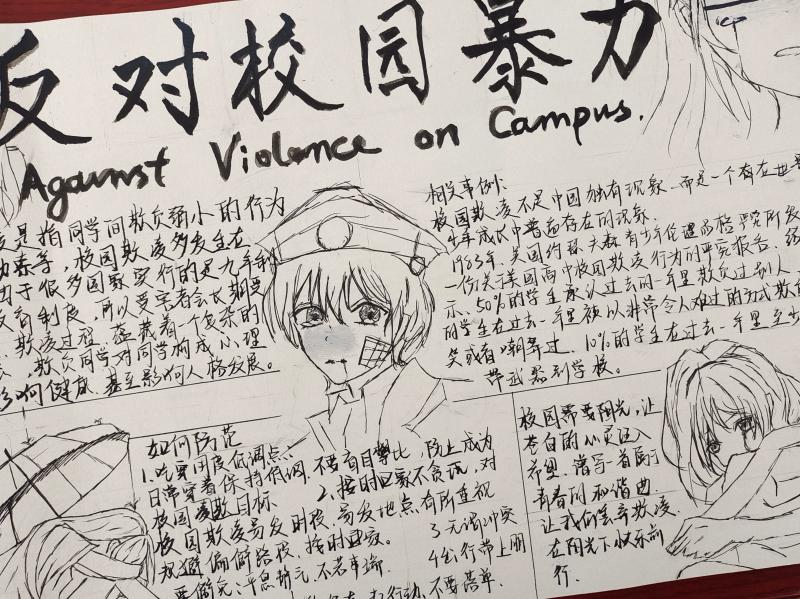 反对校园暴力
Against Violence on Campus.
是指同学间欺负弱小的行为
校园欺凌多发生在
由于很多国家实行的是九年制
教育制度，所以受害者会长期受
欺凌过程，蕴藏着一个复杂的
欺负同学对同学构成心理
影响健康，甚至影响人格发展。
相关事例：
校园欺凌不是中国独有现象，而是一个存在世界
年成长中普遍存在的现象。
1983年，美国约瑟夫森青少年伦理品格研究所发
一份关于美国高中校园欺凌行为的研究报告
示，50%的学生承认过去的一年里欺负过别人
的学生在过去一年里被以非常令人难过的方式欺负
笑或者嘲弄过，10%的学生在过去一年里至少
带武器到学校。
如何防范
1.吃穿用度低调点、
日常穿着保持低调，不要盲目攀比，防止成为
校园凌欺目标
2、按时回家不贪玩，对
校园欺凌易发时段、易发地点有所重视
规避偏僻路段，按时回家。
3无谓冲突
4出行带上朋
要避免
不要落单
校园需要阳光，让
苍白的心灵注入
希望，谱写一首属于
青春的和谐曲
让我们丢弃欺凌
在阳光下快乐前
行。